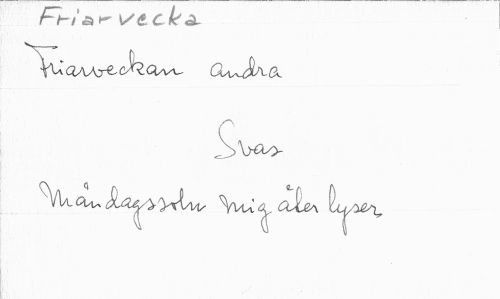 Friarvecka
Friarveckan andra
Svas
Måndagssoln mig åter lyser